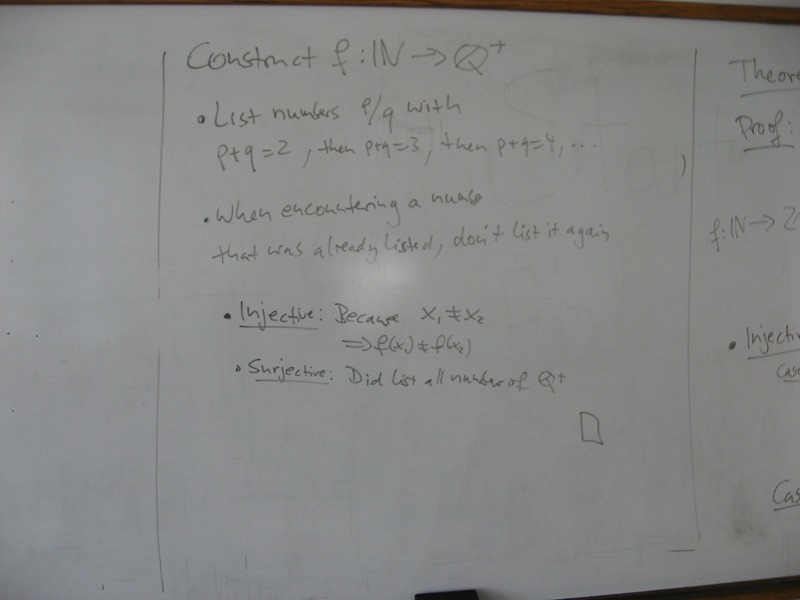 Construct f: ℕ → ℚ⁺
• List numbers p/q with
p+q=2, then p+q=3, then p+q=4, ...
• When encountering a number
that was already listed, don't list it again
• Injective: Because x₁ ≠ x₂
⇒ f(x₁) ≠ f(x₂)
• Surjective: Did list all number of ℚ⁺
□
)
Theore
Proof:
f: ℕ → ℤ
• Injectiv
Cas
Cas